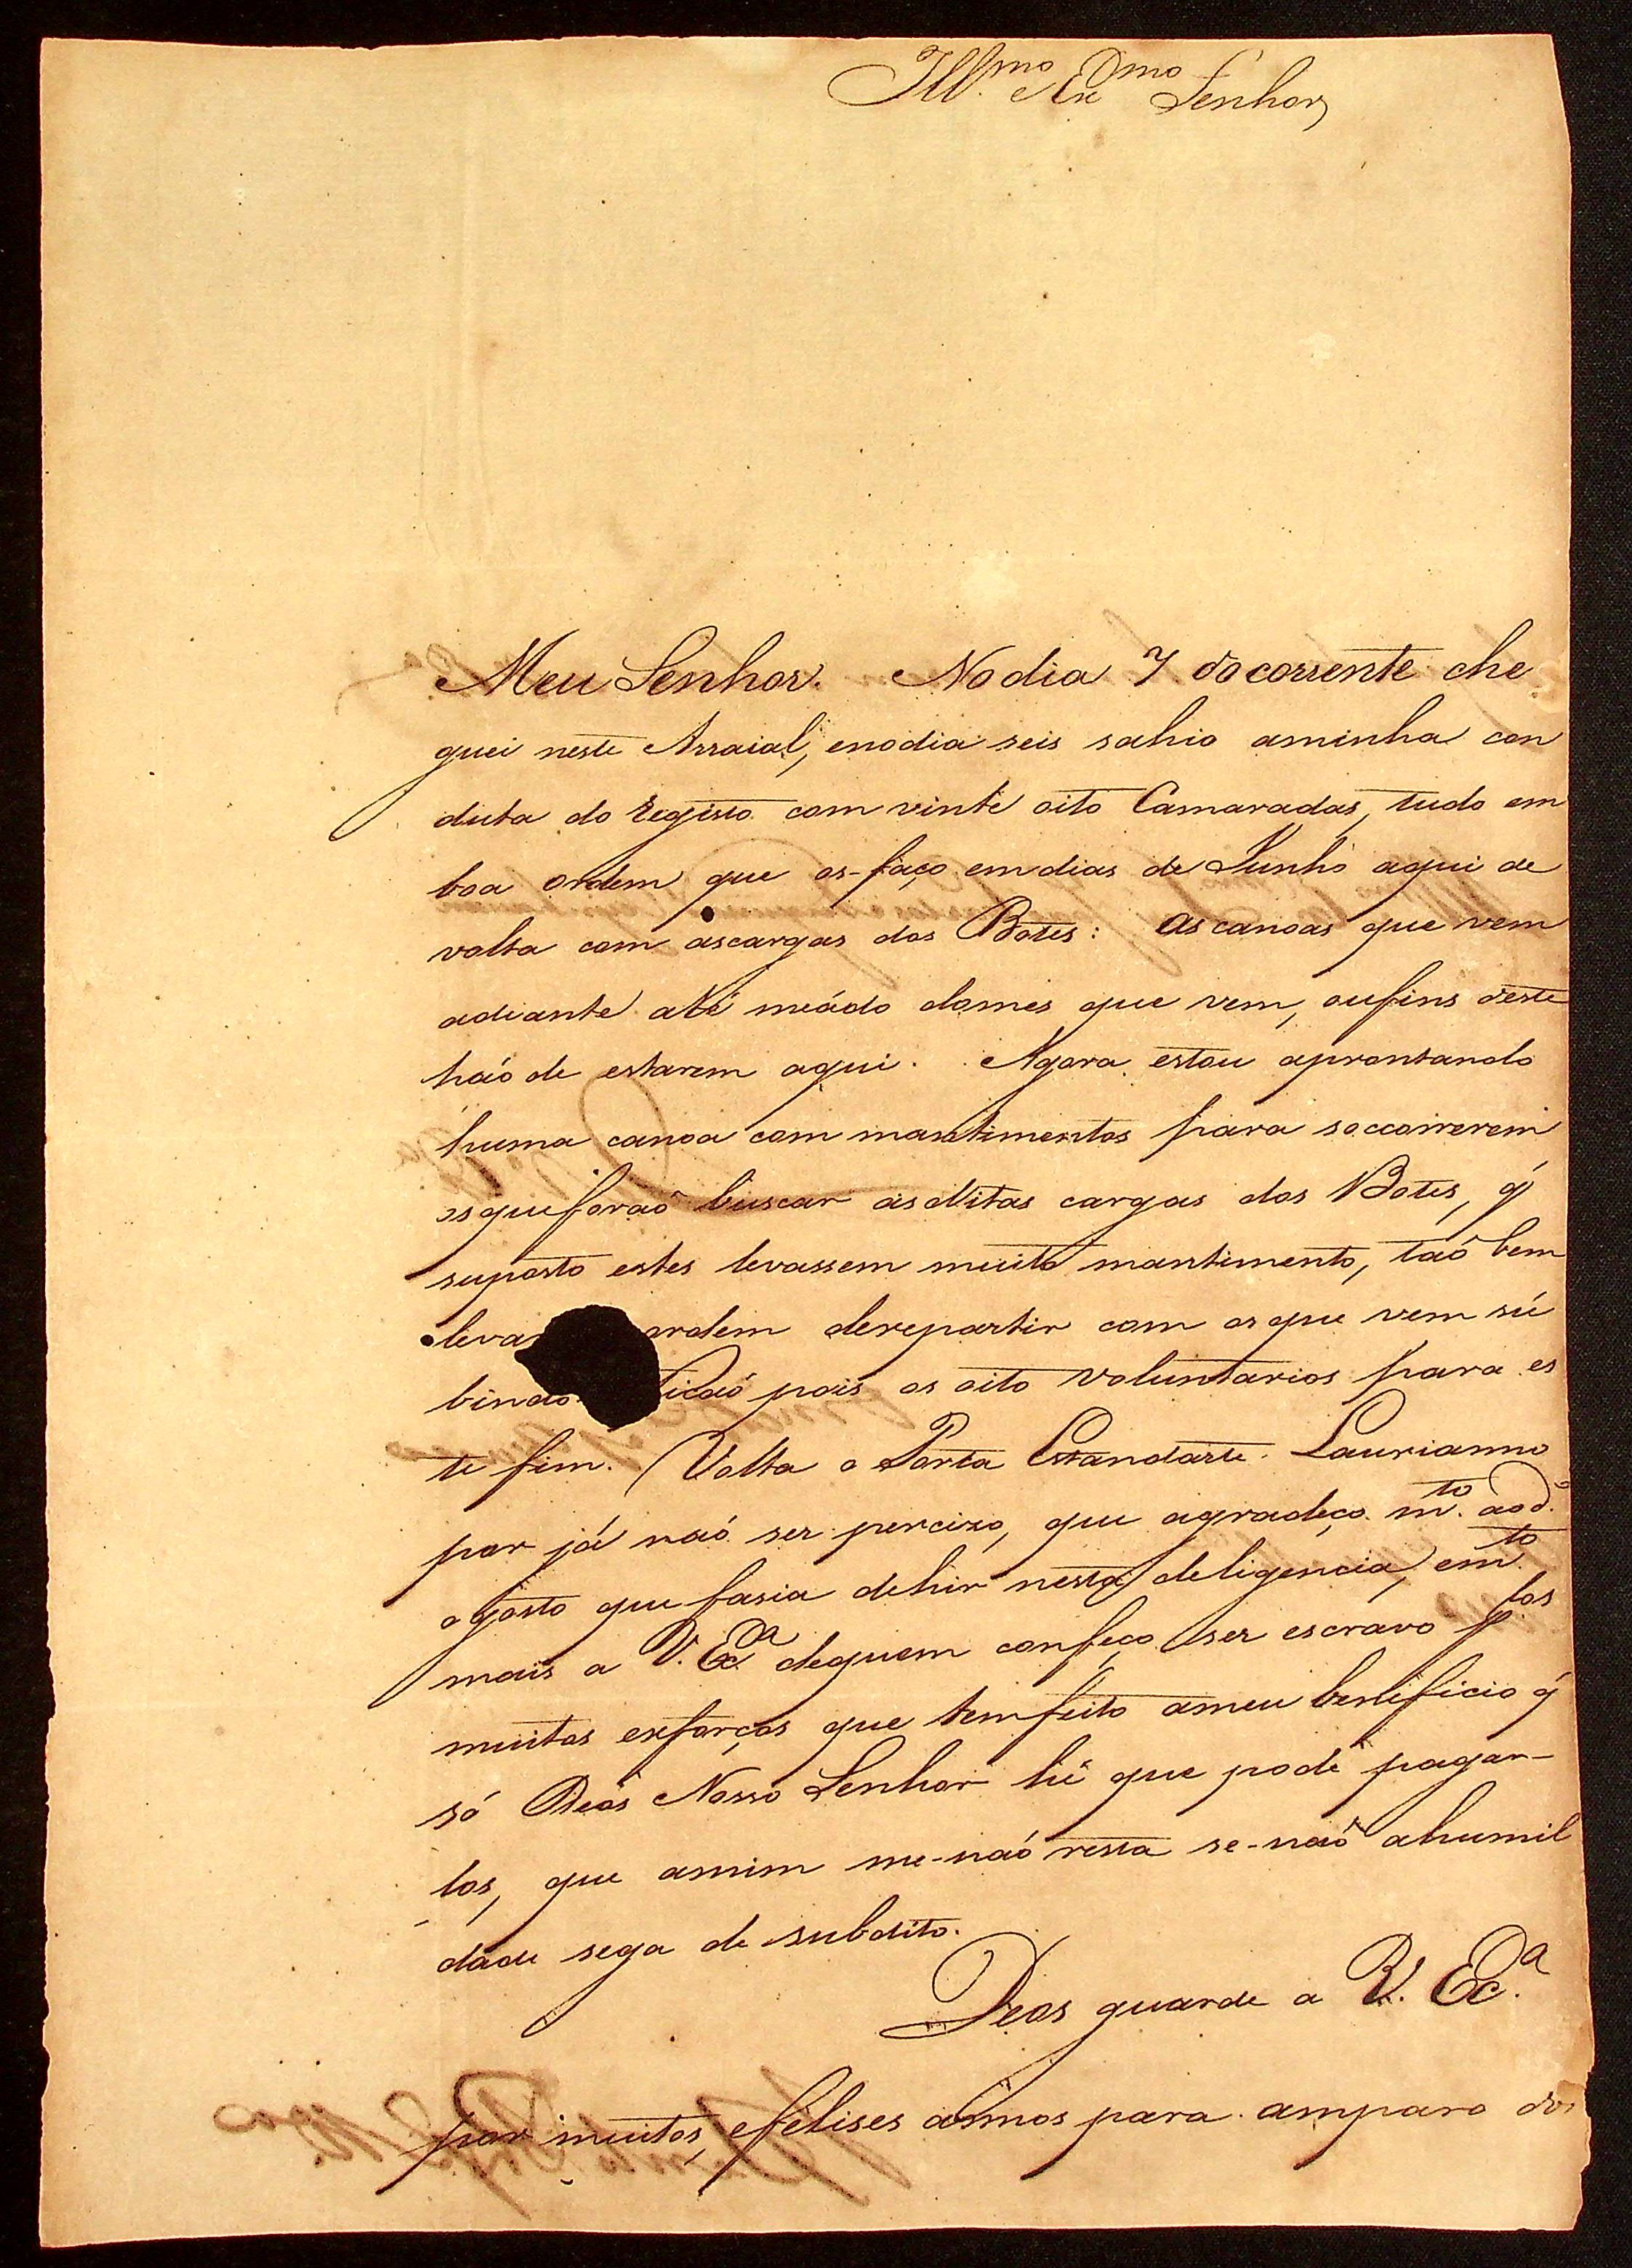 Ill.mo e Ex.mo Senhor
Meu Senhor. No dia 7 do corrente che
guei neste Arraial, enodia seis sahio aminha con
duta do Registo com vinte oito Camaradas, tudo em
boa ordem que os-faço emdias de Junho aqui de
volta com ascargas dos Botes: As canoas que vem
adiante até meádo domes que vem, oufins deste
háo de estarem aqui. Agora estou aprontando
huma canoa com mantimentos para soccorrerem
osqueforaõ buscar asditas cargas dos Botes, q̃
suposto estes levassem muito mantimento, taõ bem
leva ordem derepartir com osque vem sú
bindo. icaõ pois os oito voluntarios para es
te fim. Volta o Porta Estandarte Laurianno
por já naó ser percizo, que agradeço m.to aod.o
ogosto que fasia dehir nesta deligencia, em.to
mais a V. Ex.a dequem confeço ser escravo p.los
muitos exforços que temfeito ameu benificio q̃
só Deos Nosso Senhor hé que pode pagar-
los, que amim me-náo resta se-naõ ahumil
dade sega de subdito.
Deos guarde a V. Ex.a
por muitos, efelises annos para amparo dos